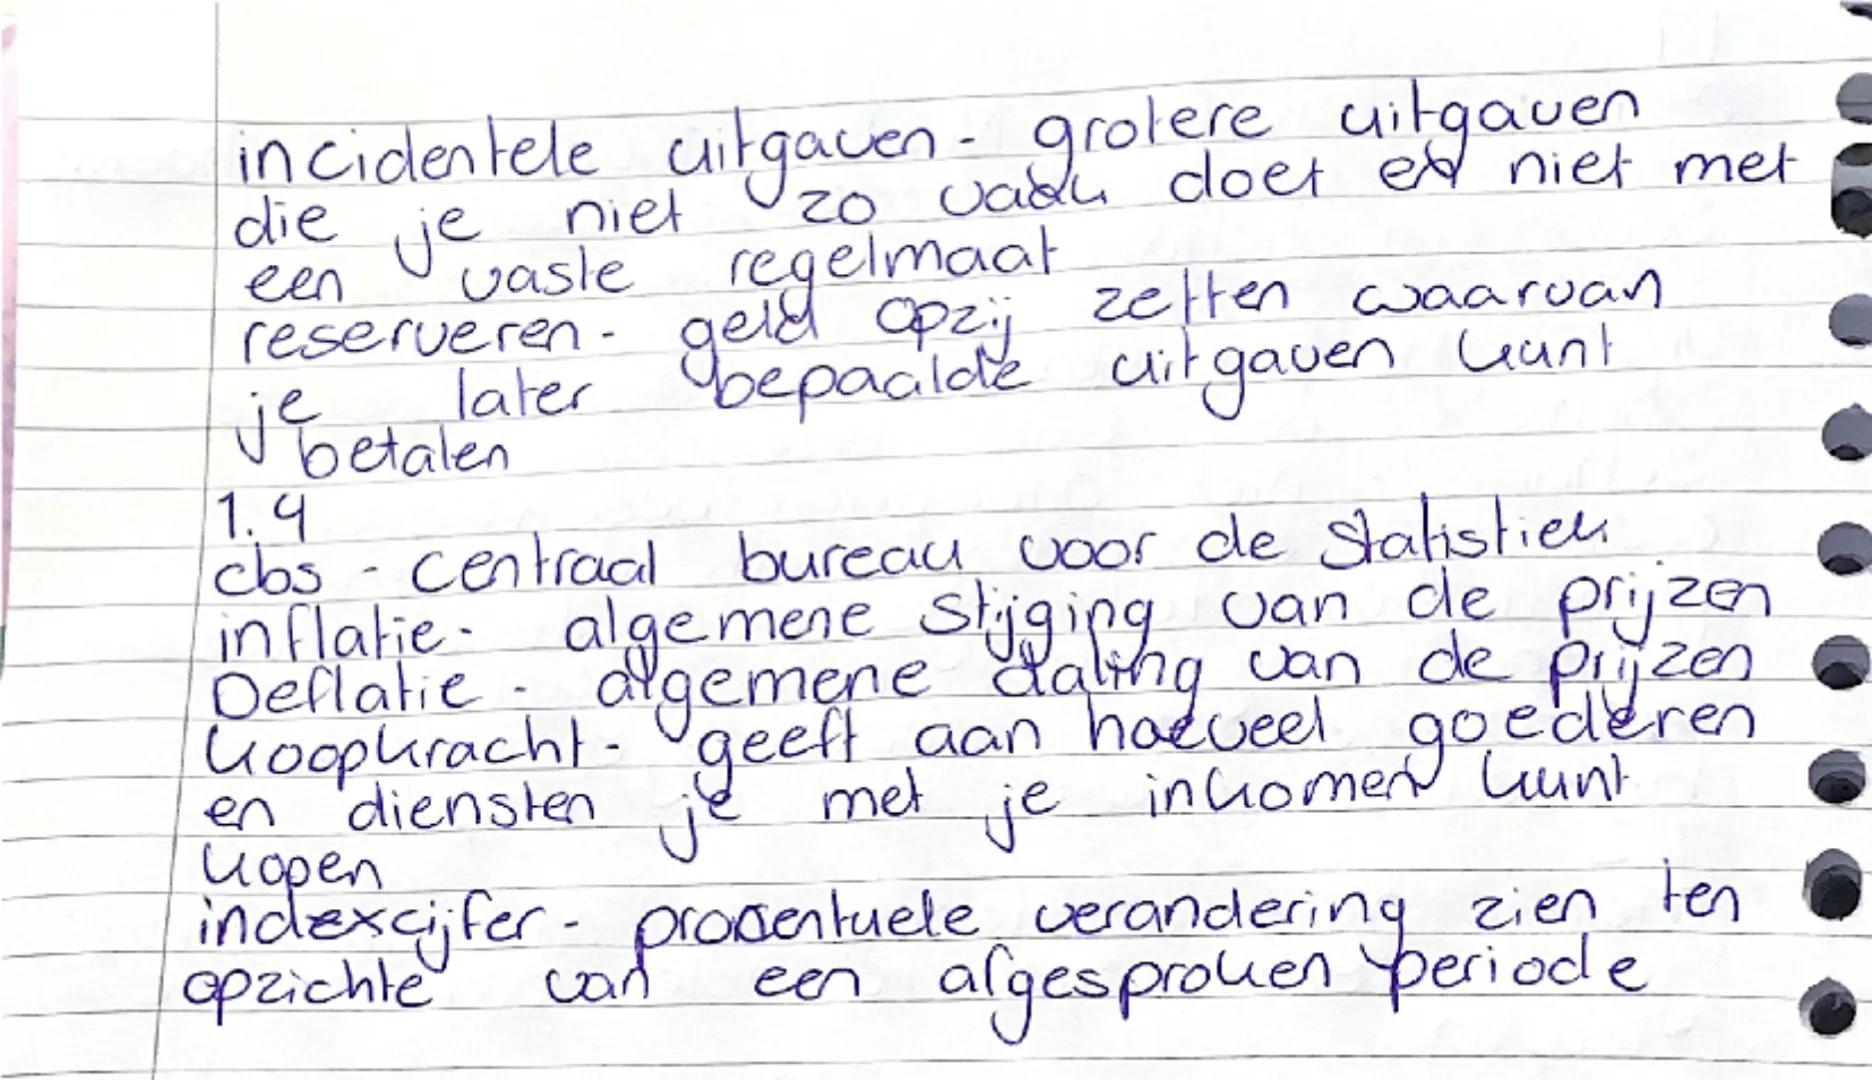 incidentele uitgaven - grotere uitgaven
die je niet zo vaak doet en niet met
een vaste regelmaat
reserveren - geld opzij zetten waarvan
je later bepaalde uitgaven kunt
betalen
1.4
cbs - centraal bureau voor de Statistiek
inflatie - algemene stijging van de prijzen
Deflatie - algemene daling van de prijzen
koopkracht - geeft aan hoeveel goederen
en diensten je met je inkomen kunt
kopen
indexcijfer - procentuele verandering zien ten
opzichte van een afgesproken periode